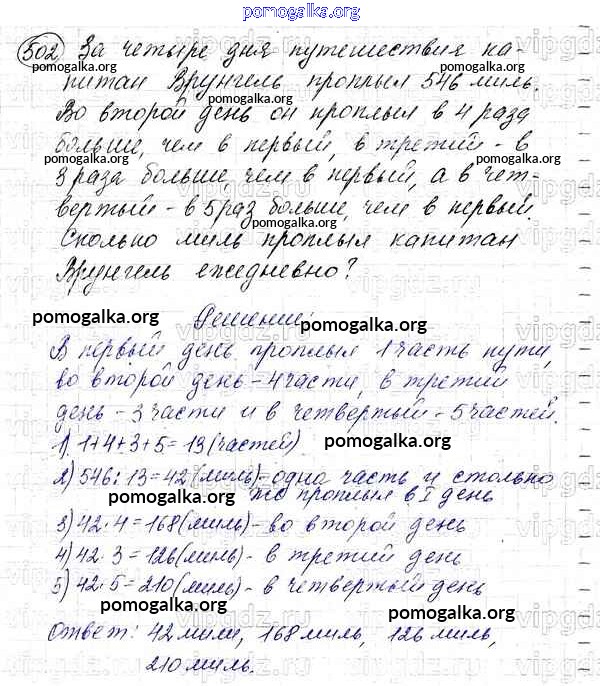 pomogalka.org
502 За четыре дня путешествия ка-
питан Врунгель проплыл 546 миль.
pomogalka.org pomogalka.org
Во второй день он проплыл в 4 раза
больше, чем в первый, в третий - в
pomogalka.org pomogalka.org
3 раза больше чем в первый, а в чет-
вертый - в 5 раз больше, чем в первый.
pomogalka.org
Сколько миль проплыл капитан
Врунгель ежедневно?
pomogalka.org Решение: pomogalka.org
В первый день проплыл 1 часть пути,
во второй день - 4 части, в третий
день - 3 части и в четвертый - 5 частей.
1) 1+4+3+5=13 (частей) pomogalka.org
2) 546:13=42 (миль) - одна часть и столько
pomogalka.org же проплыл в I день
3) 42·4=168 (миль) - во второй день
4) 42·3=126 (миль) - в третий день
5) 42·5=210 (миль) - в четвертый день
pomogalka.org pomogalka.org
Ответ: 42 мили, 168 миль, 126 миль,
210 миль.
pomogalka.org